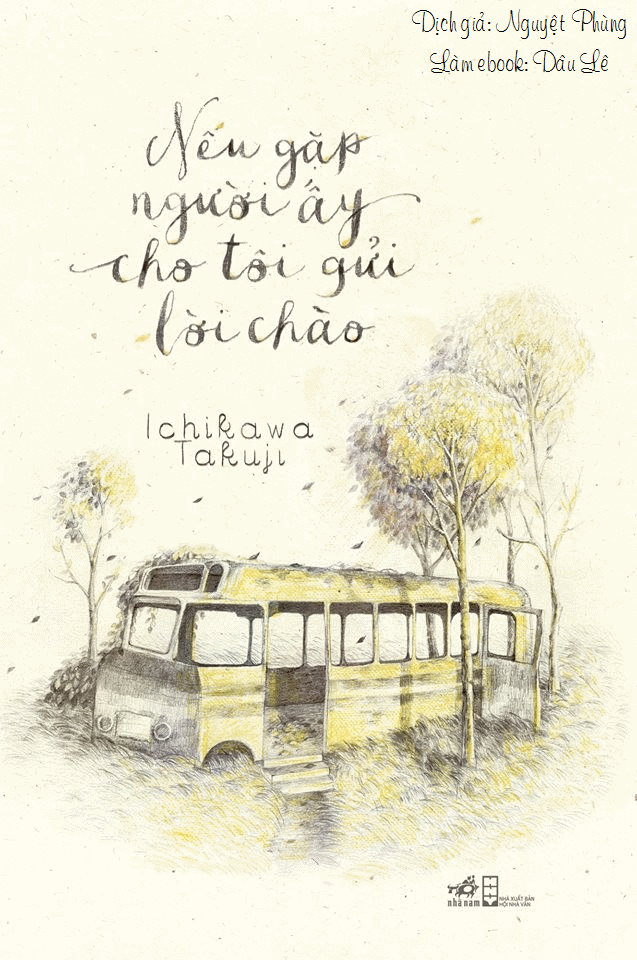 Dịch giả: Nguyệt Phùng
Làm ebook: Dâu Lê
Nếu gặp
người ấy
cho tôi gửi
lời chào
Ichikawa
Takuji
nhã nam
NHÀ XUẤT BẢN
HỘI NHÀ VĂN